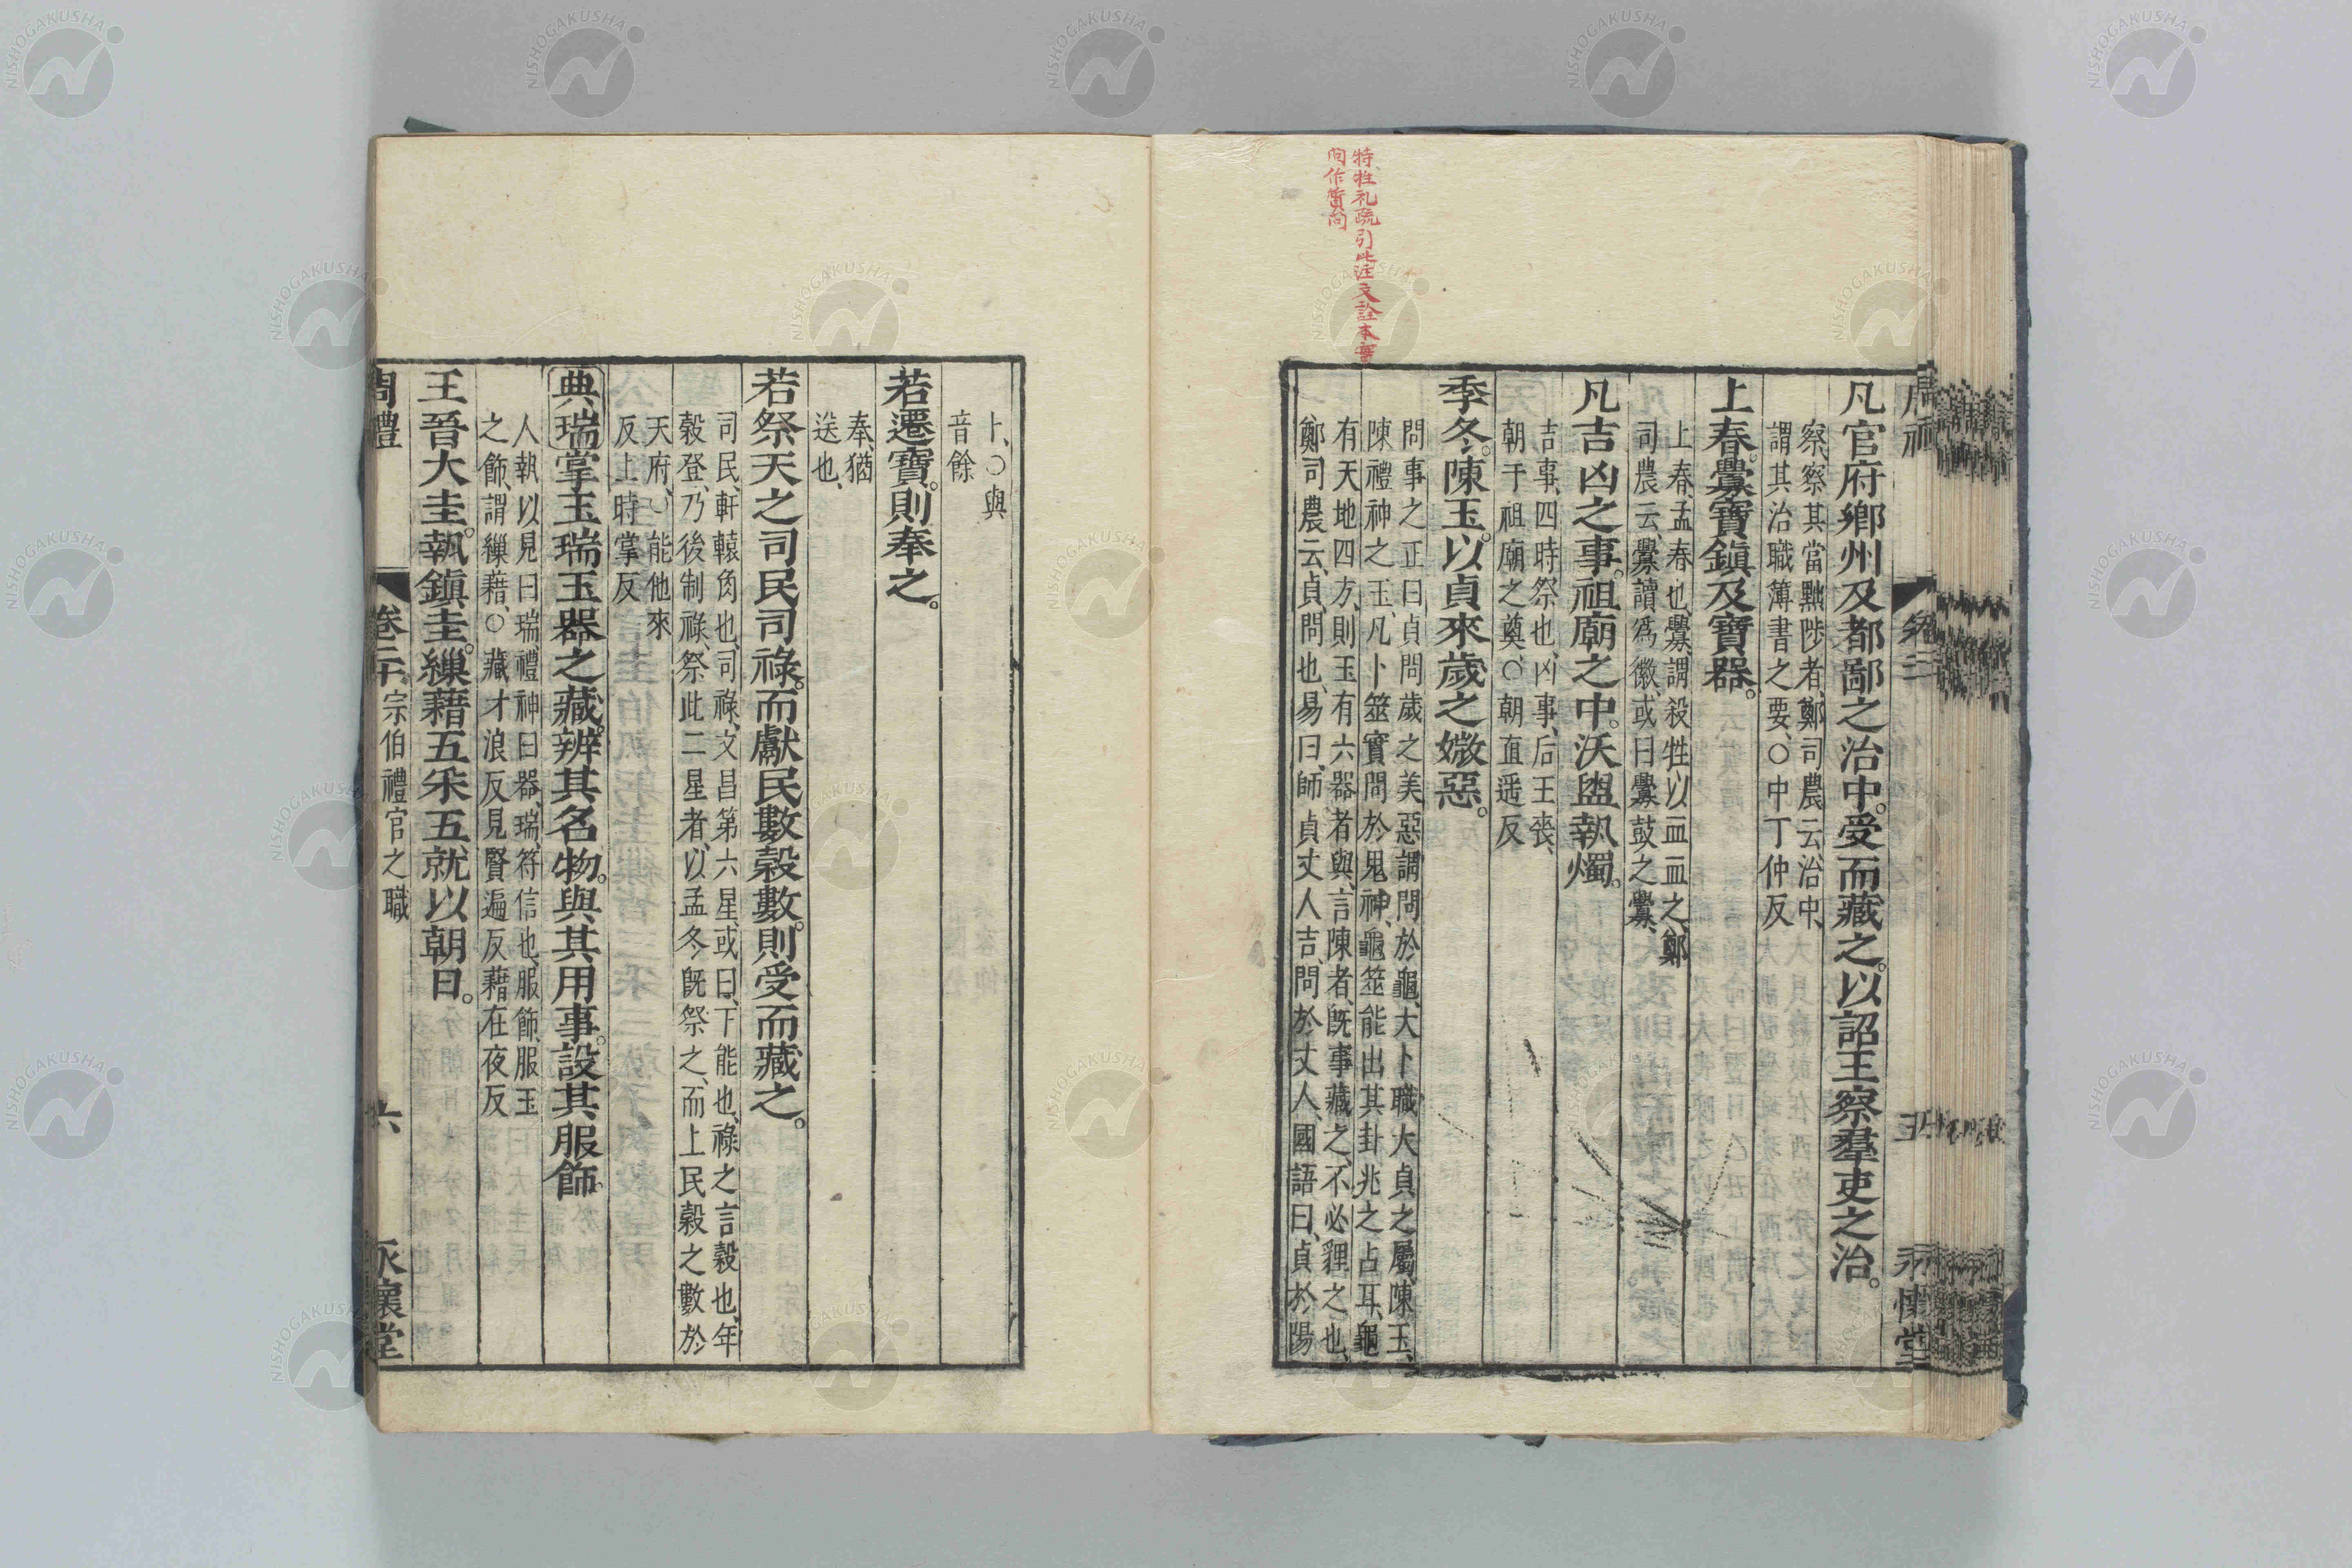 特牲礼疏引此注文詮本實
問作實問
凡官府鄉州及都鄙之治中。受而藏之。以詔王察羣吏之治。
察、察其當黜陟者、鄭司農云、治中、
謂其治職簿書之要、○中丁仲反
上春。釁寶鎮及寶器。
上春、孟春也、釁、謂殺牲、以血血之、鄭
司農云、釁讀爲徽、或曰釁鼓之釁、
凡吉凶之事。祖廟之中。沃盥執燭。
吉事、四時祭也、凶事、后王喪、
朝于祖廟之奠、○朝直遥反
季冬。陳玉。以貞來歲之媺惡。
問事之正曰貞問歲之美惡謂問於龜、大卜職大貞之屬、陳玉、
陳禮神之玉、凡卜筮實問於鬼神、龜筮能出其卦兆之占耳、龜
有天地四方、則玉有六器者與、言陳者、旣事藏之、不必貍之也、
鄭司農云、貞、問也、易曰、師、貞丈人吉、問於丈人、國語曰、貞於陽
卜、○與
音餘
若遷寶。則奉之。
奉、猶
送也、
若祭天之司民司祿。而獻民數穀數。則受而藏之。
司民、軒轅角也、司祿、文昌第六星、或曰、下能也、祿之言穀也、年
穀登、乃後制祿、祭此二星者、以孟冬旣祭之、而上民穀之數於
天府、○能他來
反上時掌反
典瑞掌玉瑞玉器之藏。辨其名物。與其用事。設其服飾。
人執以見曰瑞、禮神曰器、瑞、符信也、服飾、服玉
之飾、謂繅藉、○藏才浪反見賢遍反藉在夜反
王晉大圭。執鎮圭。繅藉五采五就以朝日。
周禮 卷二十 宗伯禮官之職 六 永懷堂